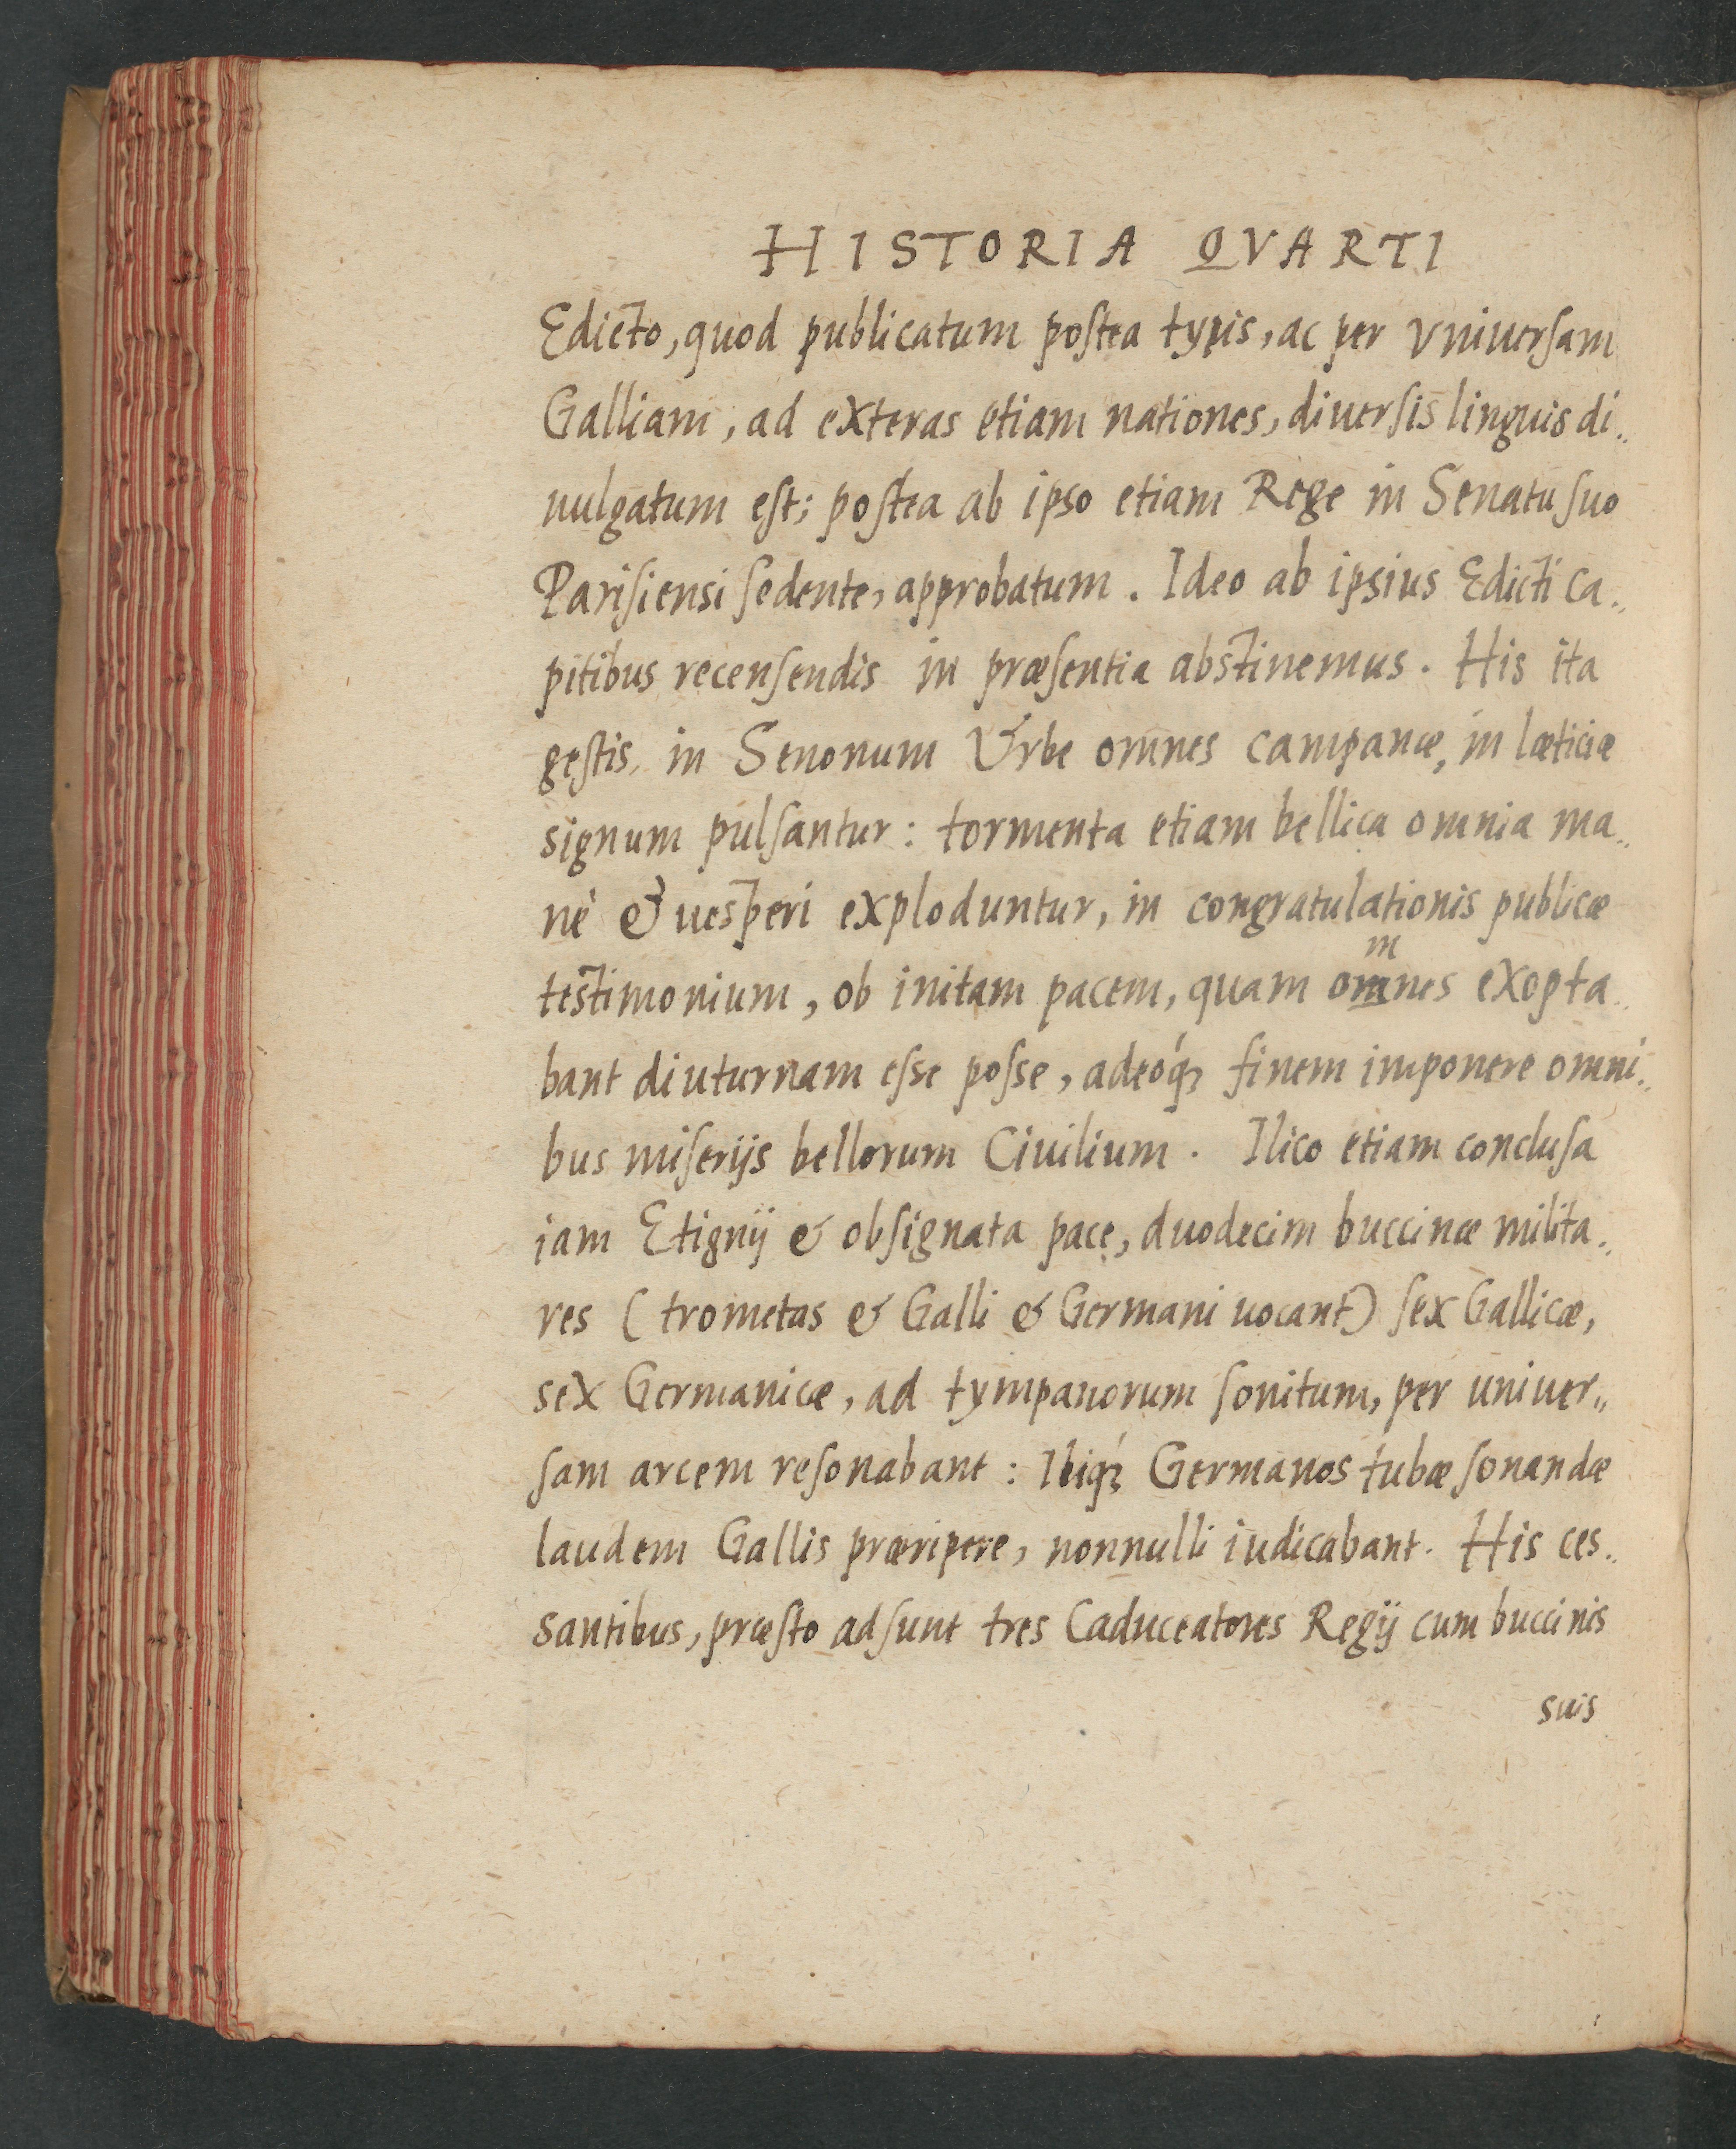 HISTORIA QVARTI
Edicto, quod publicatum poſtea typis, ac per vniuerſam
Galliam, ad exteras etiam nationes, diuerſis linguis di„
uulgatum eſt; poſtea ab ipso etiam Rege in Senatu ſuo
Pariſiensi ſedente, approbatum. Ideo ab ipsius Edicti Ca„
pitibus recenſendis in præſentia abstinemus. His ita
geſtis, in Senonum Vrbe omnes campanæ, in læticiæ
signum pulſantur: tormenta etiam bellica omnia ma„
nè & uesperi exploduntur, in congratulationis publicæ
m
testimonium, ob initam pacem, quam omnes exopta„
bant diuturnam eſse poſse, adeóq; finem imponere omni„
bus miſerijs bellorum Ciuilium. Ilico etiam concluſa
iam Etignij & obſignata pace, duodecim buccinæ milita„
res (trometas & Galli & Germani uocant) ſex Gallicæ,
sex Germanicæ, ad tympanorum ſonitum, per univer„
ſam arcem reſonabant: Ibiq; Germanos tubæ ſonandæ
laudem Gallis præripere, nonnulli iudicabant. His ces„
santibus, præſto adſunt tres Caduceatores Regij cum buccinis
suis